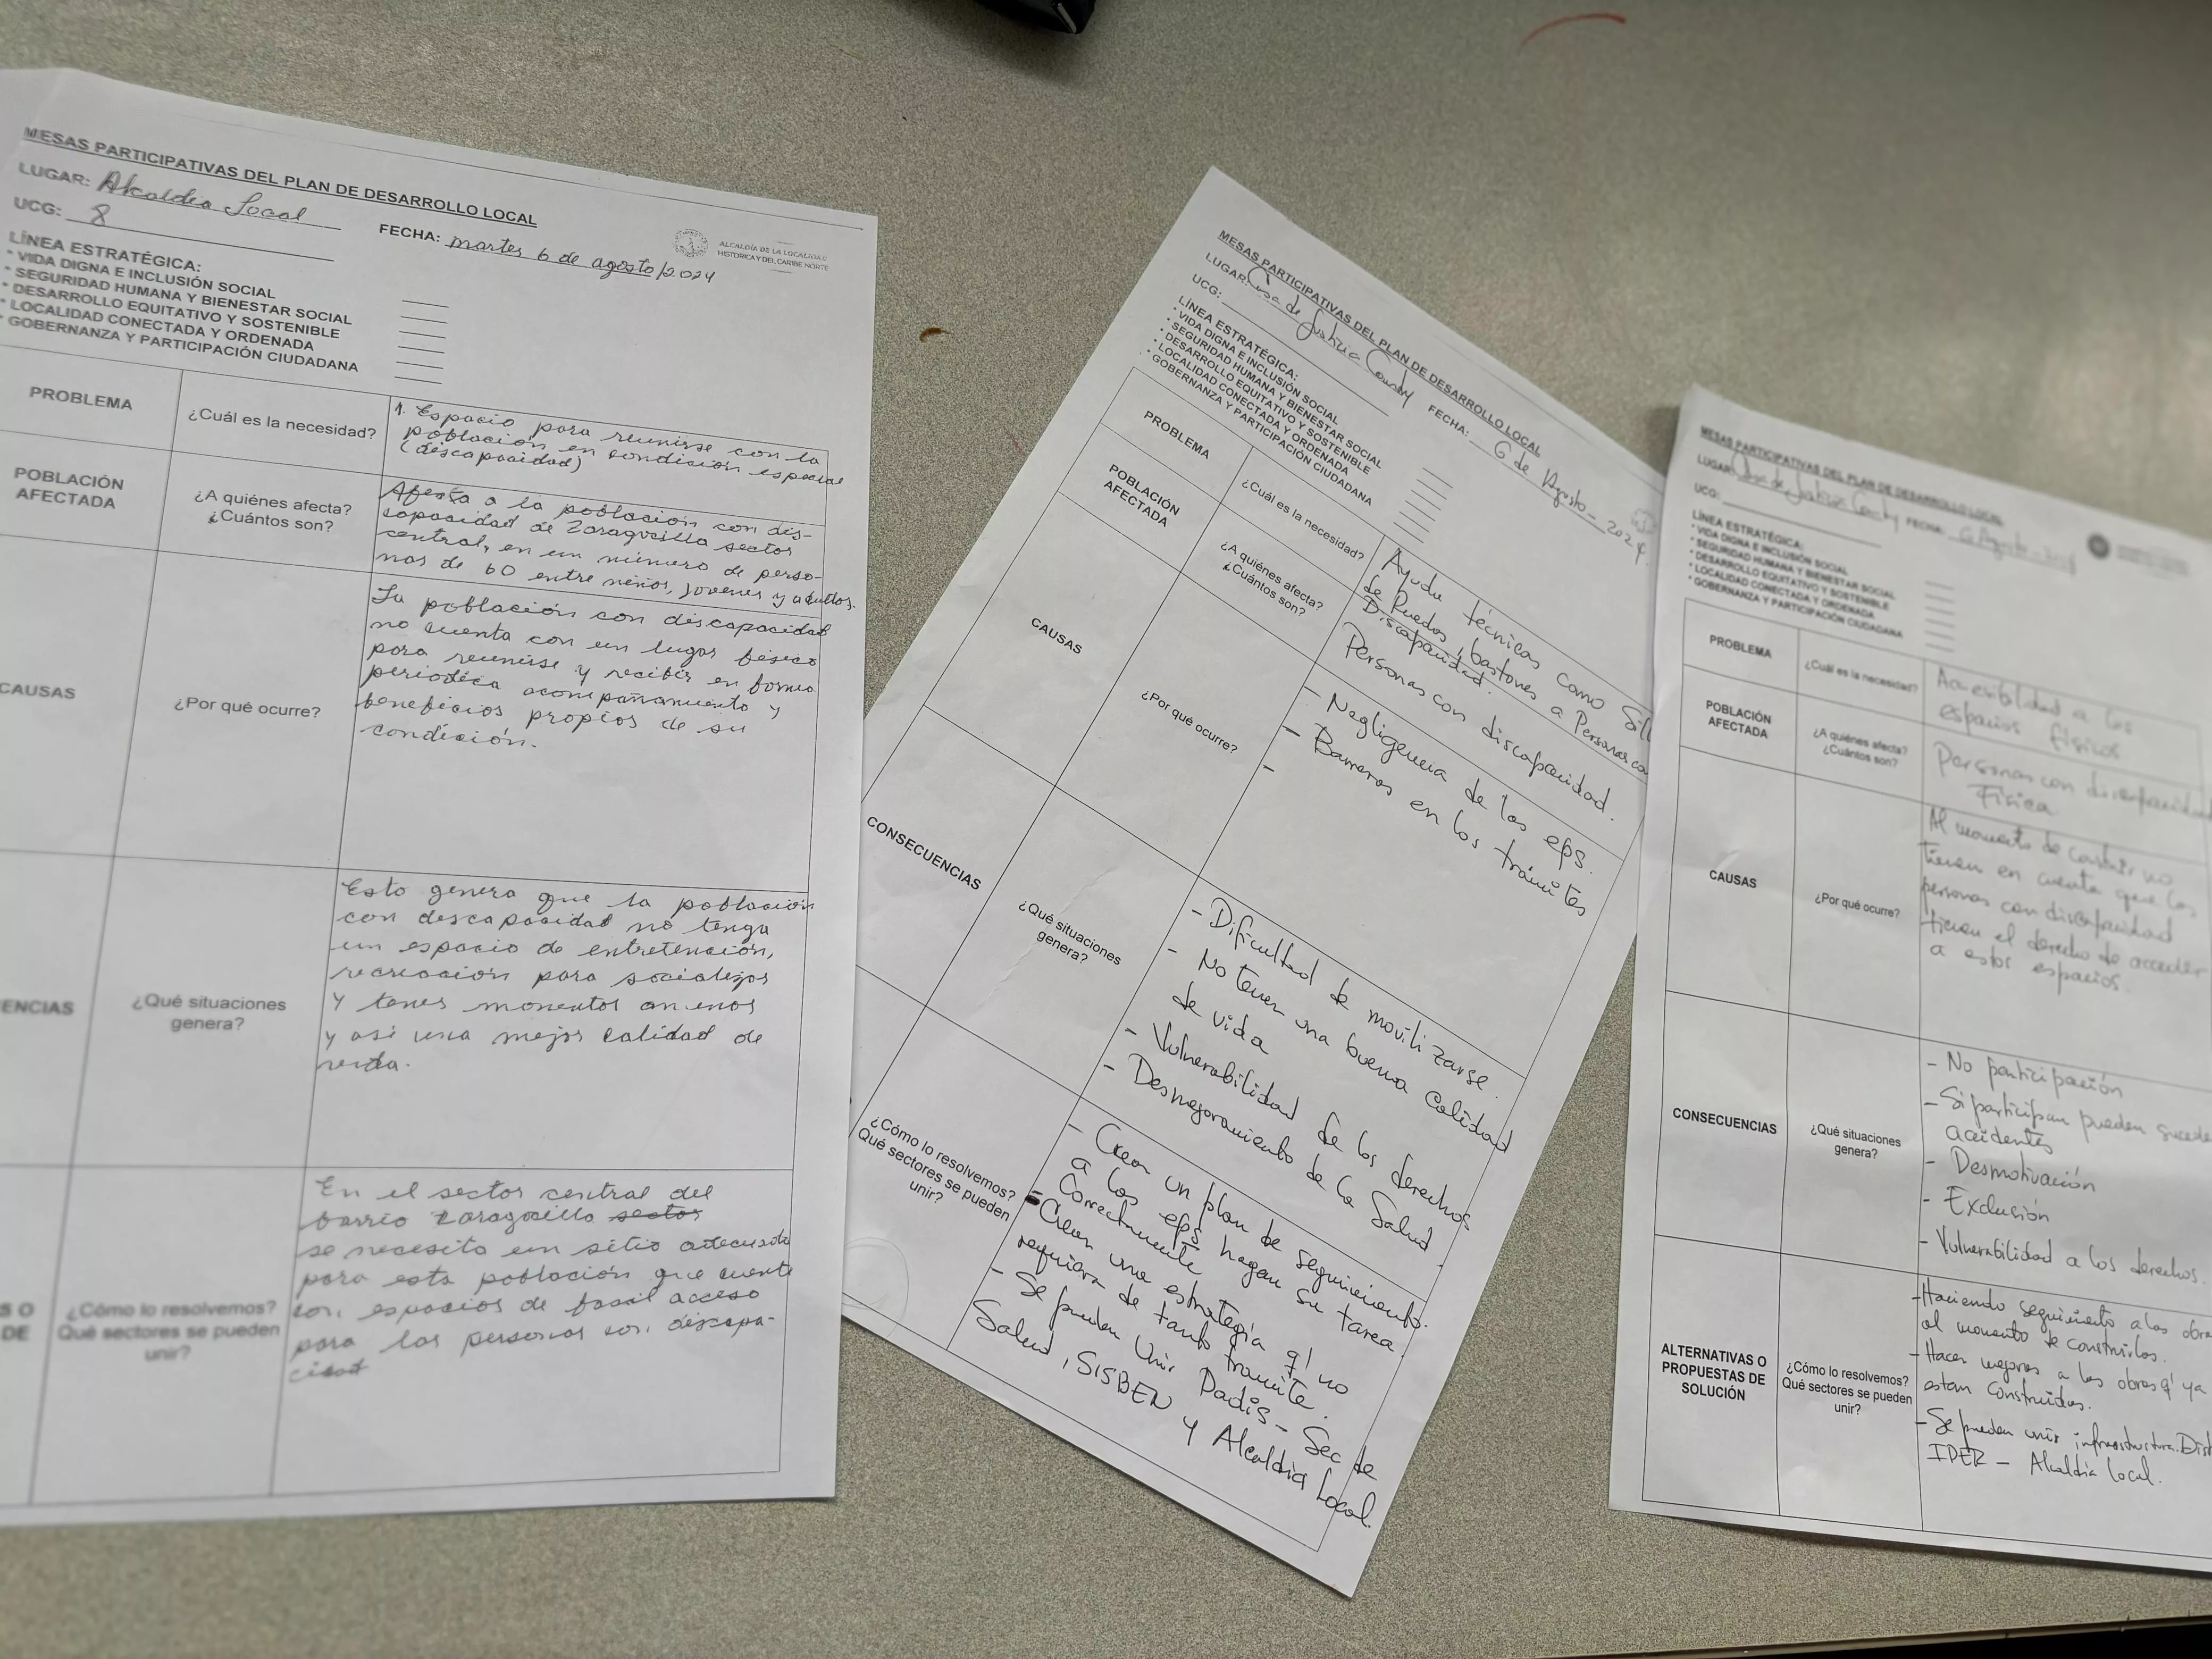 MESAS PARTICIPATIVAS DEL PLAN DE DESARROLLO LOCAL
LUGAR: Alcaldia Local
UCG: 8
FECHA: martes 6 de agosto/2024
ALCALDÍA DE LA LOCALIDAD
HISTÓRICA Y DEL CARIBE NORTE
LÍNEA ESTRATÉGICA:
* VIDA DIGNA E INCLUSIÓN SOCIAL
* SEGURIDAD HUMANA Y BIENESTAR SOCIAL
* DESARROLLO EQUITATIVO Y SOSTENIBLE
* LOCALIDAD CONECTADA Y ORDENADA
* GOBERNANZA Y PARTICIPACIÓN CIUDADANA
PROBLEMA
¿Cuál es la necesidad?
1. Espacio para reunirse con la
población en condición especial
(discapacidad)
POBLACIÓN
AFECTADA
¿A quiénes afecta?
¿Cuántos son?
Afecta a la población con dis-
capacidad de Zaragocilla sector
central, en un número de perso-
nas de 60 entre niños, jovenes y adultos.
CAUSAS
¿Por qué ocurre?
La población con discapacidad
no cuenta con un lugar físico
para reunirse y recibir en forma
periodica acompañamiento y
beneficios propios de su
condición.
ENCIAS
¿Qué situaciones
genera?
Esto genera que la población
con discapacidad no tenga
un espacio de entretención,
recreación para socializar
y tener momentos amenos
y así una mejor calidad de
vida.
S O
DE
¿Cómo lo resolvemos?
Qué sectores se pueden
unir?
En el sector central del
barrio Zaragocilla sector
se necesita un sitio adecuado
para esta población que cuente
con espacios de facil acceso
para las personas con discapa-
cidad
MESAS PARTICIPATIVAS DEL PLAN DE DESARROLLO LOCAL
LUGAR: Casa de Justicia Country
UCG:
FECHA: 6 de Agosto - 2024
LÍNEA ESTRATÉGICA:
* VIDA DIGNA E INCLUSIÓN SOCIAL
* SEGURIDAD HUMANA Y BIENESTAR SOCIAL
* DESARROLLO EQUITATIVO Y SOSTENIBLE
* LOCALIDAD CONECTADA Y ORDENADA
* GOBERNANZA Y PARTICIPACIÓN CIUDADANA
PROBLEMA
¿Cuál es la necesidad?
Ayudu técnicas como Sill
de Ruedas, bastones a Personas co
Discapacidad.
POBLACIÓN
AFECTADA
¿A quiénes afecta?
¿Cuántos son?
Personas con discapacidad.
CAUSAS
¿Por qué ocurre?
- Negligencia de las eps.
- Barreras en los trámites
-
CONSECUENCIAS
¿Qué situaciones
genera?
- Dificultad de movilizarse.
- No tener una buena calidad
de vida
- Vulnerabilidad de los derechos
- Desmejoramiento de la Salud
¿Cómo lo resolvemos?
Qué sectores se pueden
unir?
- Crear un plan de seguimiento.
a las eps hagan su tarea
Correctamente
- Crear una estrategia q' no
requiera de tanto tramite.
- Se pueden Unir Dadis - Sec de
Salud, SISBEN y Alcaldia Local.
MESAS PARTICIPATIVAS DEL PLAN DE DESARROLLO LOCAL
LUGAR: Casa de Justicia Country
FECHA: 6 Agosto - 2024
UCG:
LÍNEA ESTRATÉGICA:
* VIDA DIGNA E INCLUSIÓN SOCIAL
* SEGURIDAD HUMANA Y BIENESTAR SOCIAL
* DESARROLLO EQUITATIVO Y SOSTENIBLE
* LOCALIDAD CONECTADA Y ORDENADA
* GOBERNANZA Y PARTICIPACIÓN CIUDADANA
PROBLEMA
¿Cuál es la necesidad?
Accesibilidad a los
espacios físicos
POBLACIÓN
AFECTADA
¿A quiénes afecta?
¿Cuántos son?
Personas con discapacidad
Física
CAUSAS
¿Por qué ocurre?
Al momento de construir no
tienen en cuenta que las
personas con discapacidad
tienen el derecho de acceder
a estos espacios.
CONSECUENCIAS
¿Qué situaciones
genera?
- No participación
- Si participan pueden sucede
accidentes
- Desmotivación
- Exclusión
- Vulnerabilidad a los derechos.
ALTERNATIVAS O
PROPUESTAS DE
SOLUCIÓN
¿Cómo lo resolvemos?
Qué sectores se pueden
unir?
- Haciendo seguimiento a las obra
al momento de construirlas.
- Hacer mejoras a las obras q' ya
estan construidas.
- Se pueden unir infraestructura. Dist
IDER - Alcaldía local.